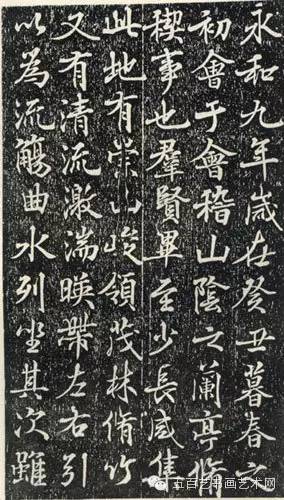 永和九年歲在癸丑暮春之
初會于會稽山陰之蘭亭脩
稧事也羣賢畢至少長咸集
此地有崇山峻領茂林脩竹
又有清流激湍暎帶左右引
以為流觴曲水列坐其次雖
百艺书画艺术网